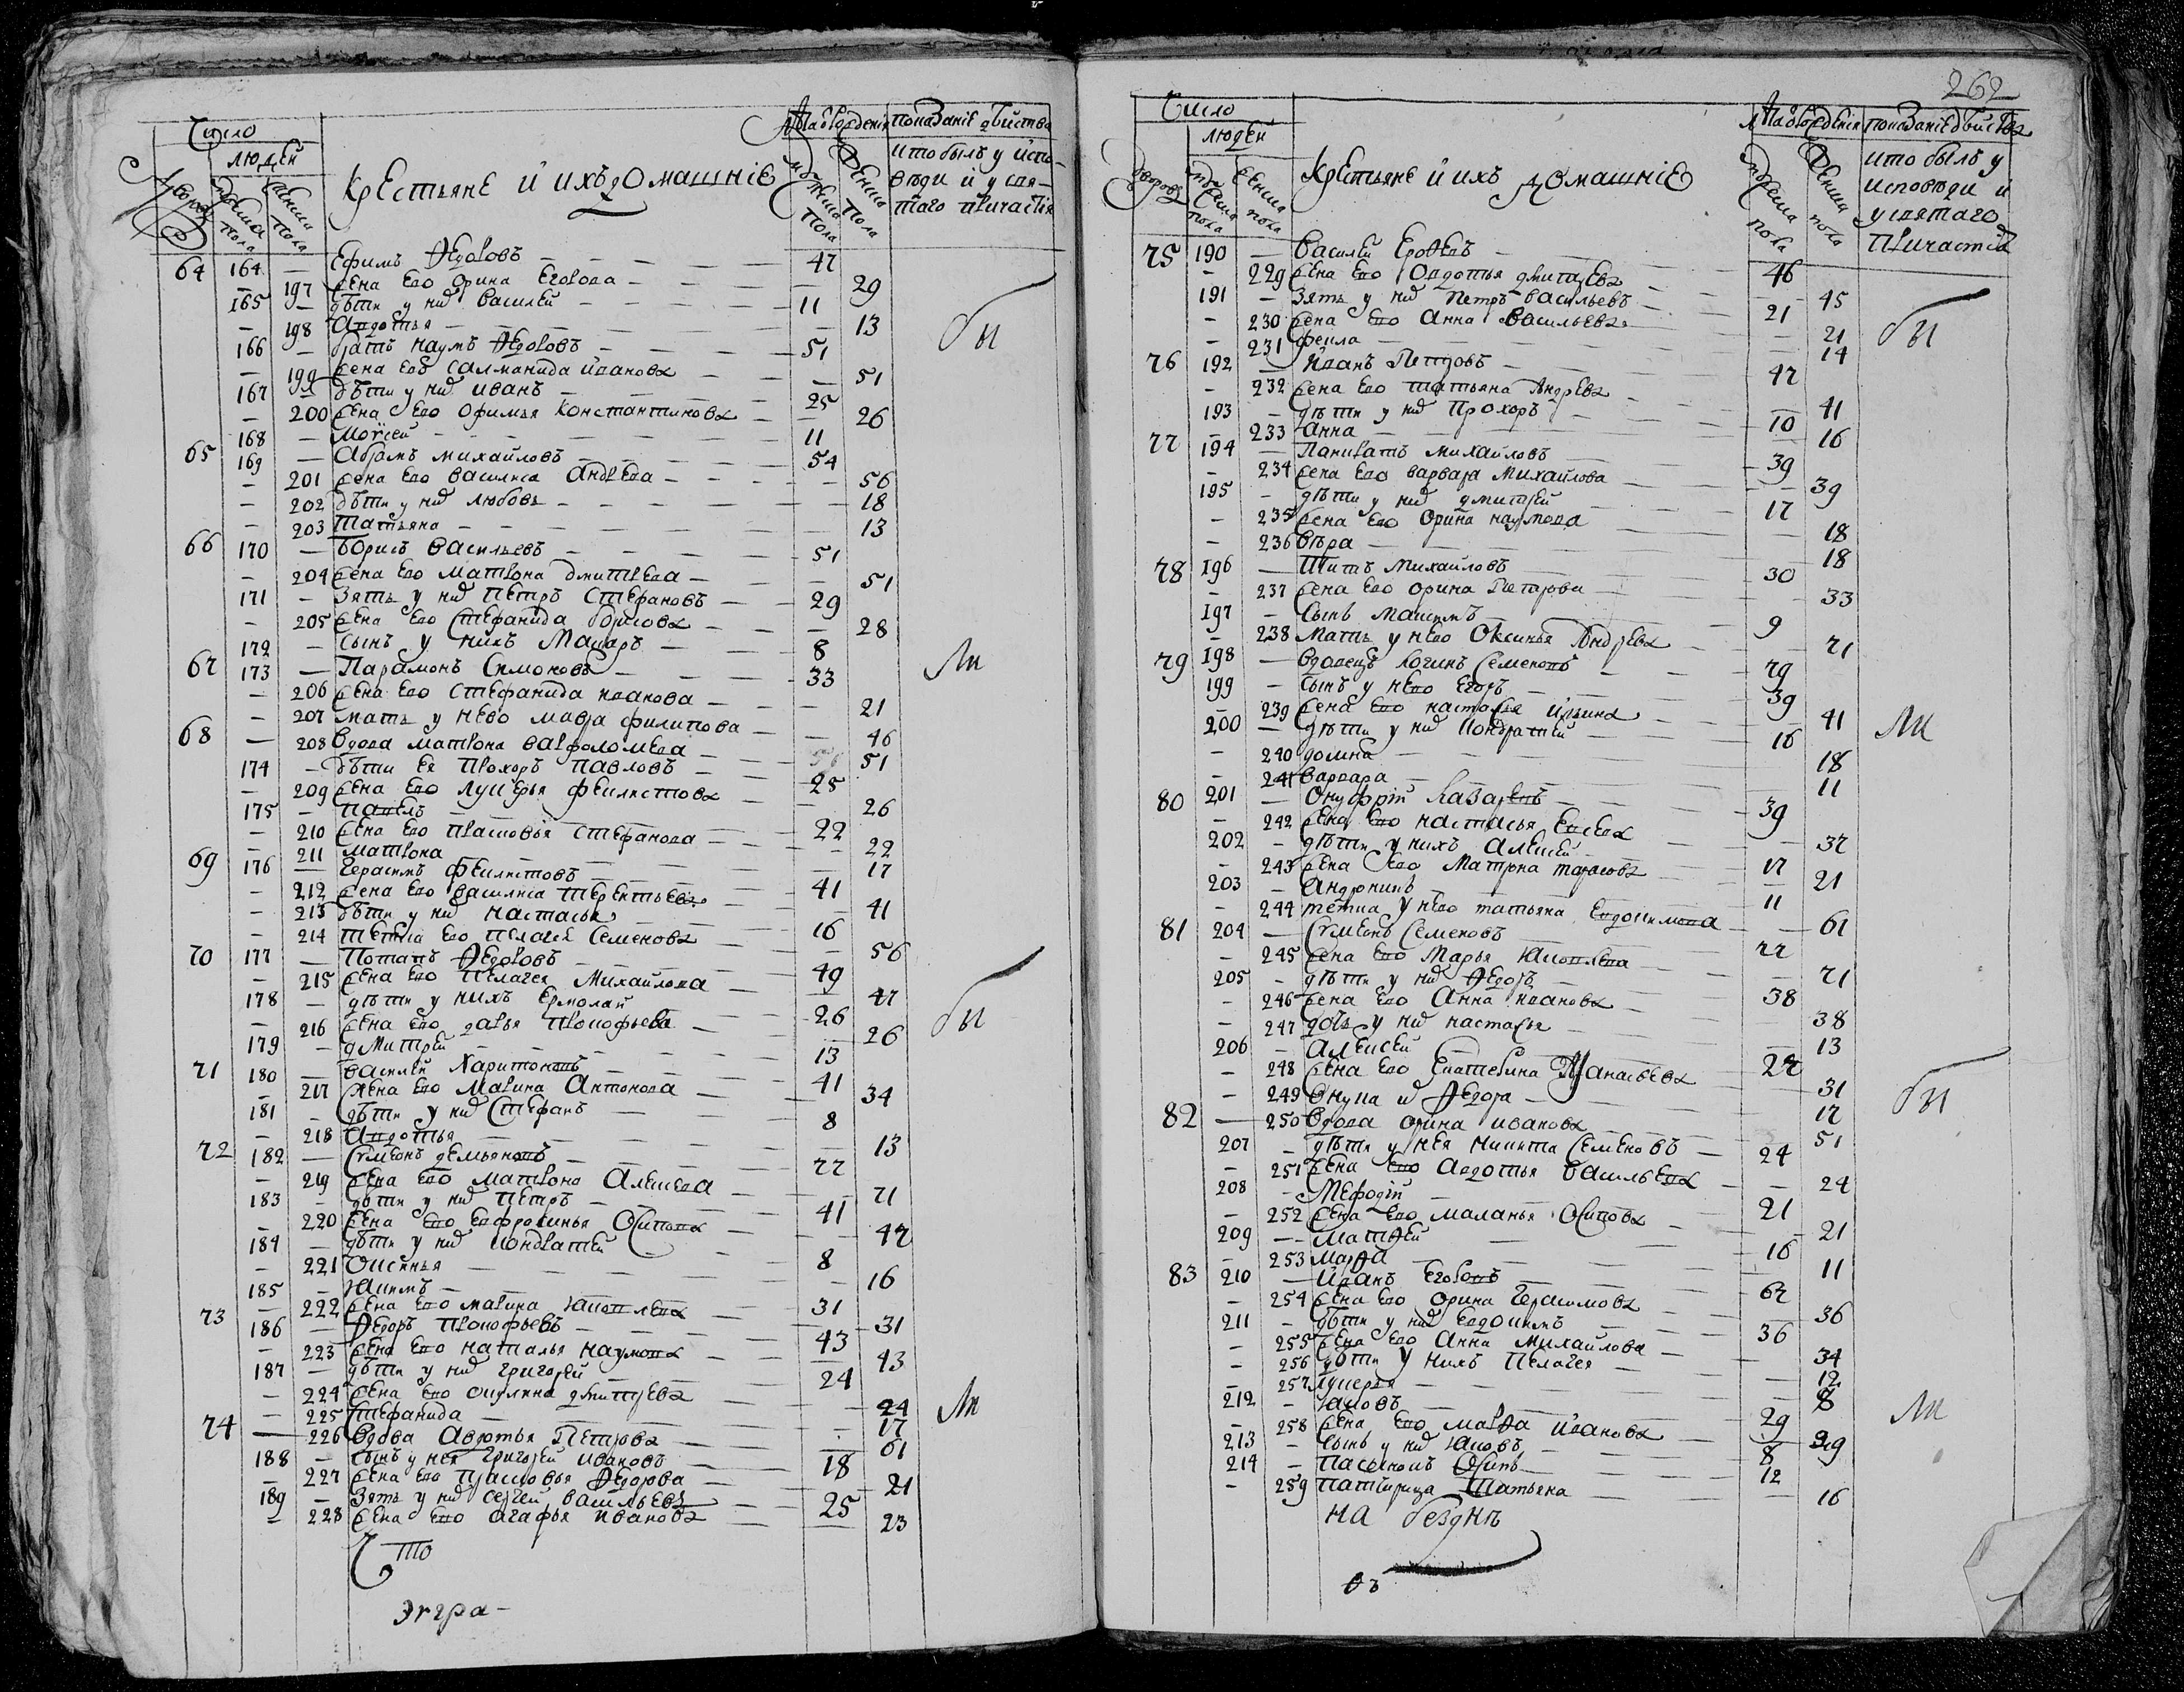 Число
людей
Дворов
мужеска пола
женска пола
Крестьяне и ихъ домашніе
Лѣта от рожденія
мужеска пола
женска пола
показаніе действа
кто былъ у испо-
веди и у свя-
таго причастія
64 164 — Ефимъ Федоровъ — 47
— 197 жена ево Орина Егорова — 29
165 — дѣти у них Василей — 11
— 198 Авдотья — 13
166 — братъ Наумъ Федоровъ — 51
— 199 жена евъ Салманида Иванова — 51
167 — дѣти у них Иванъ — 25
— 200 жена ево Офимья Константинова — 26
168 — Моѵсей — 11
65 169 — Абрамъ Михайловъ — 54
— 201 жена ево Василиса Андреева — 56
— 202 дѣти у них Любовь — 18
— 203 Татьяна — 13
66 170 — Борисъ Васильевъ — 51
— 204 жена ево Матрона Дмитрева — 51
171 — Зять у них Петръ Стефановъ — 29
— 205 жена ево Стефанида Борисова — 28
172 — сынъ у нихъ Макаръ — 8
67 173 — Парамонъ Симоновъ — 33
— 206 жена ево Стефанида Иванова — 21
— 207 мать у нево Мавра Филипова — 46
68 — 208 Вдова Матрона Варфоломева — 51
174 — дѣти ея Прохоръ Павловъ — 25
— 209 жена ево Лукерья Феклистова — 26
175 — Павелъ — 22
— 210 жена ево Прасковья Стефанова — 22
— 211 Матрона — 17
69 176 — Герасимъ Феклистовъ — 41
— 212 жена ево Василиса Терентьева — 41
— 213 дѣти у них Настасья — 16
— 214 тетка ево Пелагея Семенова — 56
70 177 — Потапъ Федоровъ — 49
— 215 жена ево Пелагея Михайлова — 47
178 — дѣти у нихъ Ермолай — 26
— 216 жена ево Дарья Прокофьева — 26
179 — Дмитрей — 13
71 180 — Василей Харитоновъ — 41
— 217 жена ево Марина Антонова — 34
181 — дѣти у них Стефанъ — 8
— 218 Авдотья — 13
72 182 — Сѵмеонъ Демьяновъ — 77
— 219 жена ево Матрона Алексева — 71
183 — дѣти у них Петръ — 41
— 220 жена ево Евфросинья Осипова — 47
184 — дѣти у них Кондратей — 8
— 221 Оксинья — 16
185 — Якимъ — 31
— 222 жена ево Марина Яковлева — 31
73 186 — Федоръ Прокофьевъ — 43
— 223 жена ево Наталья Наумова — 43
187 — дѣти у них Григорей — 24
— 224 жена ево Окулина Дмитрева — 24
— 225 Стефанида — 17
74 — 226 Вдова Авдотья Петрова — 61
188 — сынъ у нея Григорей Ивановъ — 18
— 227 жена ево Прасковья Федорова — 21
189 — Зять у них Сергей Васильевъ — 25
— 228 жена ево Агафья Иванова — 23
бы
ли
бы
ли
Что
262
Число
людей
Дворовъ
мужеска пола
женска пола
Крестьяне и ихъ домашніе
Лѣта от рожденія
мужеска пола
женска пола
показаніе действа
кто былъ у
исповѣди и
у святаго
причастія
75 190 — Василей Ерофеевъ — 46
— 229 жена ево Овдотья Дмитрева — 45
191 — Зять у них Петръ Васильевъ — 21
— 230 жена ево Анна Васильева — 21
— 231 Фекла — 14
76 192 — Иванъ Петровъ — 47
— 232 жена ево Татьяна Андрева — 41
193 — дѣти у них Прохоръ — 10
— 233 Анна — 16
77 194 — Панкратъ Михайловъ — 39
— 234 жена ево Варвара Михайлова — 39
195 — дѣти у них Дмитрей — 17
— 235 жена ево Орина Наумова — 18
— 236 Вѣра — 18
78 196 — Титъ Михайловъ — 30
— 237 жена ево Орина Петрова — 33
197 — Сынъ Максимъ — 9
— 238 мать у нево Оксинья Андрева — 71
79 198 — Вдовецъ Логинъ Семеновъ — 79
199 — сынъ у нево Егоръ — 39
— 239 жена ево Настасья Ильина — 41
200 — дѣти у них Кондратей — 16
— 240 Домна — 18
— 241 Варвара — 11
80 201 — Онуфрій Лазаревъ — 39
— 242 жена ево Настасья Евсева — 37
202 — дѣти у нихъ Алексей — 17
— 243 жена ево Матрна Тарасова — 21
203 — Андроникъ — 11
— 244 тетка у нево Татьяна Евдокимова — 61
81 204 — Сѵмеонъ Семеновъ — 77
— 245 жена ево Марья Яковлева — 71
205 — дѣти у них Федоръ — 38
— 246 жена ево Анна Иванова — 38
— 247 дочь у них Настасья — 13
206 — Алексей — 27
— 248 жена ево Екатерина Афанасьева — 31
— 249 Внука и Федора — 17
82 — 250 Вдова Орина Иванова — 51
207 — дѣти у нея Никита Семеновъ — 24
— 251 жена ево Авдотья Васильева — 24
208 — Мефодій — 21
— 252 жена ево Маланья Осипова — 21
209 — Матфей — 16
— 253 Марфа — 11
83 210 — Иванъ Егоровъ — 67
— 254 жена ево Орина Герасимова — 36
211 — дѣти у них Евдокимъ — 36
— 255 жена ево Анна Михайлова — 34
— 256 дѣти у нихъ Пелагея — 12
— 257 Лукерья — 8
212 — Яковъ — 29
— 258 жена ево Марфа Иванова — 29
213 — сынъ у них Яковъ — 8
214 — пасынокъ Осипъ — 12
— 259 патчирица Татьяна — 16
бы
ли
бы
ли
на безднѣ